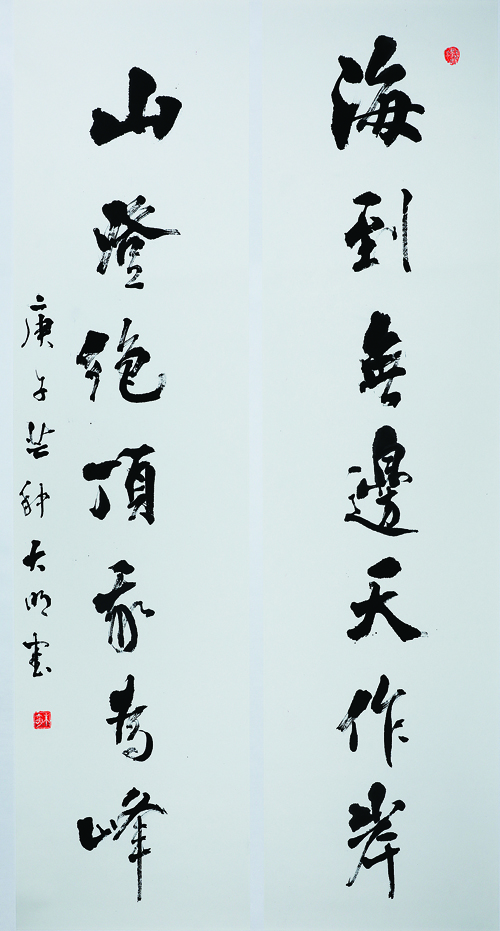 海到無邊天作岸
山登絶頂我為峰
庚子芒種天明書